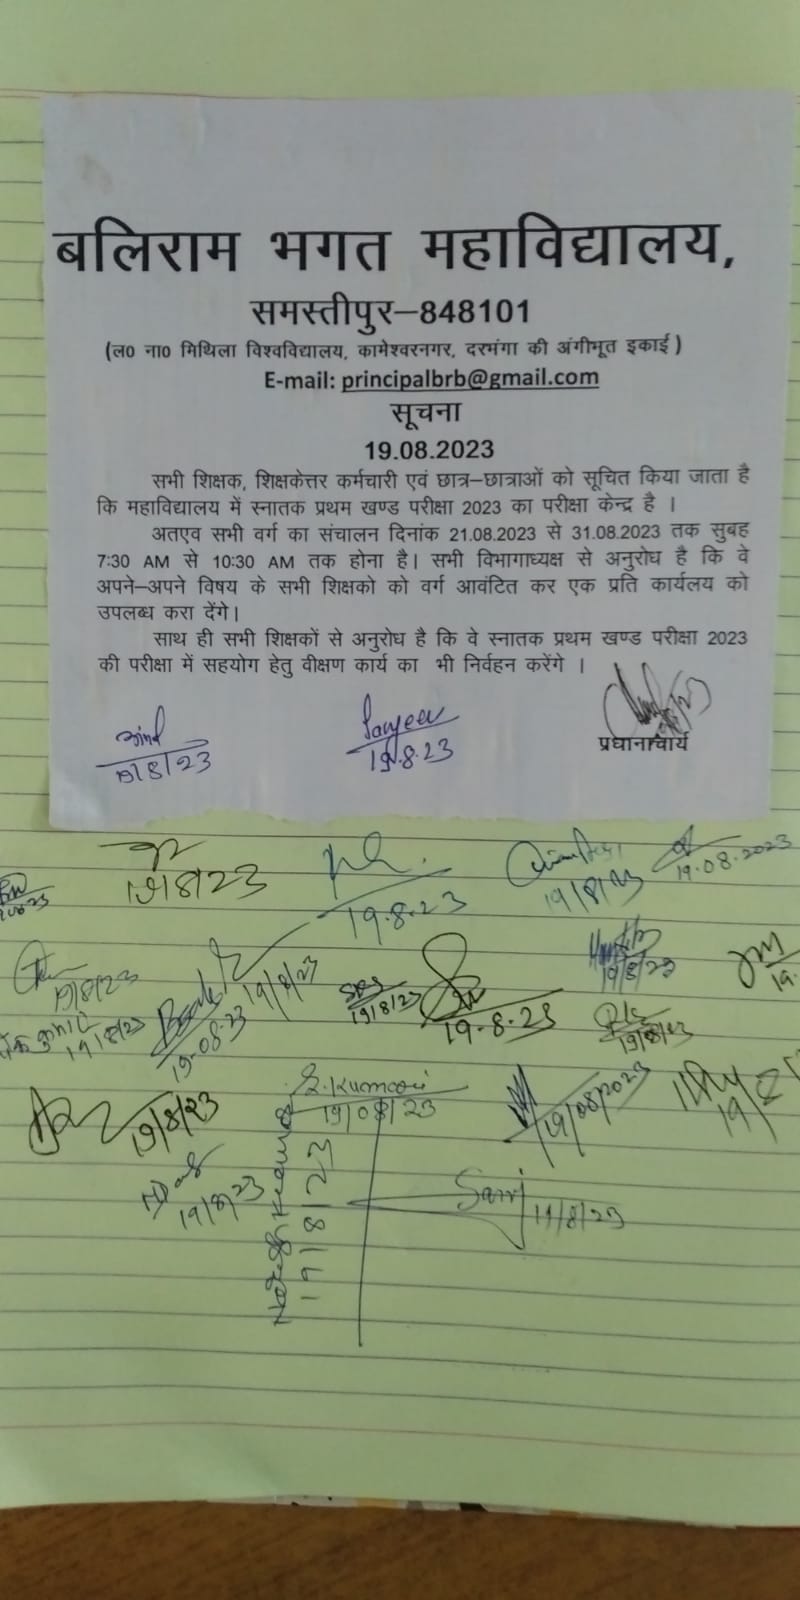 बलिराम भगत महाविद्यालय,
समस्तीपुर–848101
(ल0 ना0 मिथिला विश्वविद्यालय, कामेश्वरनगर, दरभंगा की अंगीभूत इकाई)
E-mail: principalbrb@gmail.com
सूचना
19.08.2023
सभी शिक्षक, शिक्षकेत्तर कर्मचारी एवं छात्र–छात्राओं को सूचित किया जाता है
कि महाविद्यालय में स्नातक प्रथम खण्ड परीक्षा 2023 का परीक्षा केन्द्र है ।
अतएव सभी वर्ग का संचालन दिनांक 21.08.2023 से 31.08.2023 तक सुबह
7:30 AM से 10:30 AM तक होना है। सभी विभागाध्यक्ष से अनुरोध है कि वे
अपने–अपने विषय के सभी शिक्षको को वर्ग आवंटित कर एक प्रति कार्यलय को
उपलब्ध करा देंगे।
साथ ही सभी शिक्षकों से अनुरोध है कि वे स्नातक प्रथम खण्ड परीक्षा 2023
की परीक्षा में सहयोग हेतु वीक्षण कार्य का भी निर्वहन करेंगे ।
प्रधानाचार्य
Sanjeev
19/8/23 19.8.23
19/8/23 19.8.23 19/8/23 19.08.2023
19/8/23 19/8/23 19/8/23 19/8/23
19/8/23 19.08.23 19.8.23 19/8/23
S. Kumari
19/8/23 19/08/23 19/08/2023
19/8/23
Naresh Kumar
19/8/23
19/8/23